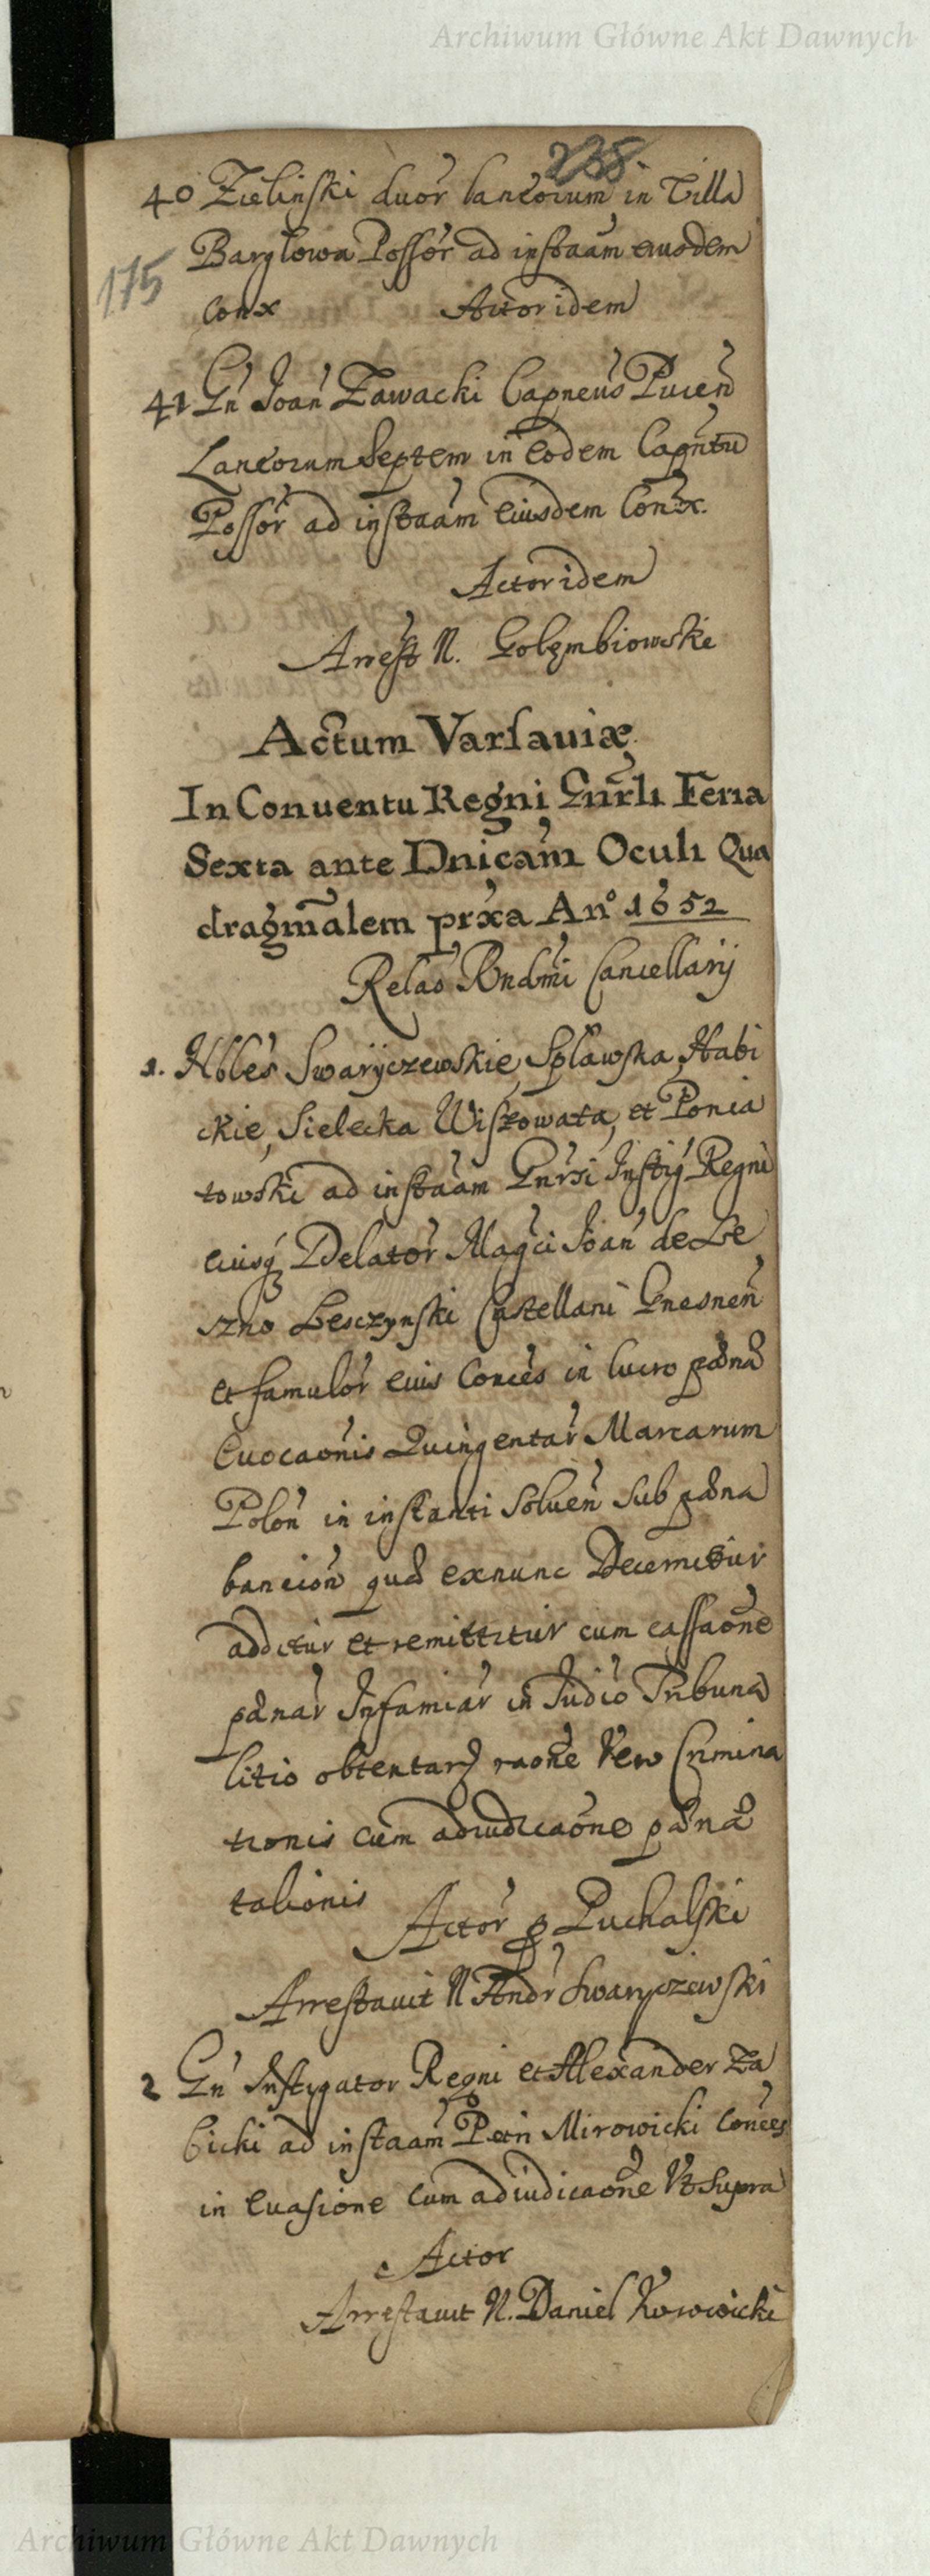 Archiwum Główne Akt Dawnych
238
40 Zielinski duor laneorum in Villa
175
Barylowa Possor ad instaam eiusdem
Conx Actor idem
41 Gn Joan Zawacki Capneus Pucen
Laneorum Septem in eodem Capntu
Possor ad instaam eiusdem Conx.
Actor idem
Arrest N. Golembiowski
Actum Varsauiæ
In Conuentu Regni Gnrli Feria
Sexta ante Dnicam Oculi Qua
dragmalem prxa An° 1652
Relao Rndmi Cancellarij
1. Nbles Swaryczewskie, Splawska, Habi
ckie, Sielecka Wiszowata, et Ponia
towski ad instaam Gnrsi Instig Regni
eiusq Delator Magci Joan de Le
szno Lesczynski Castellani Gnesnen
et famulor eius Conces in lucro pæna
Euocaonis Quingentar Marcarum
Polon in instanti Soluen sub pæna
bannion quæ exnunc Decernitur
additur et remittitur cum cassaone
pænar Infamiar in Judio Tribuna
litio obtentar raone Vero Crimina
tionis cum adiudicaone pæna
talionis
Actor P Puchalski
Arrestauit N Andr Swaryczewski
2 Gn Instigator Regni et Alexander Za
bicki ad instaam Petri Mirowicki Conces
in Euasione cum adiudicaone Vt Supra
Actor
Arrestauit N. Daniel
Archiwum Główne Akt Dawnych